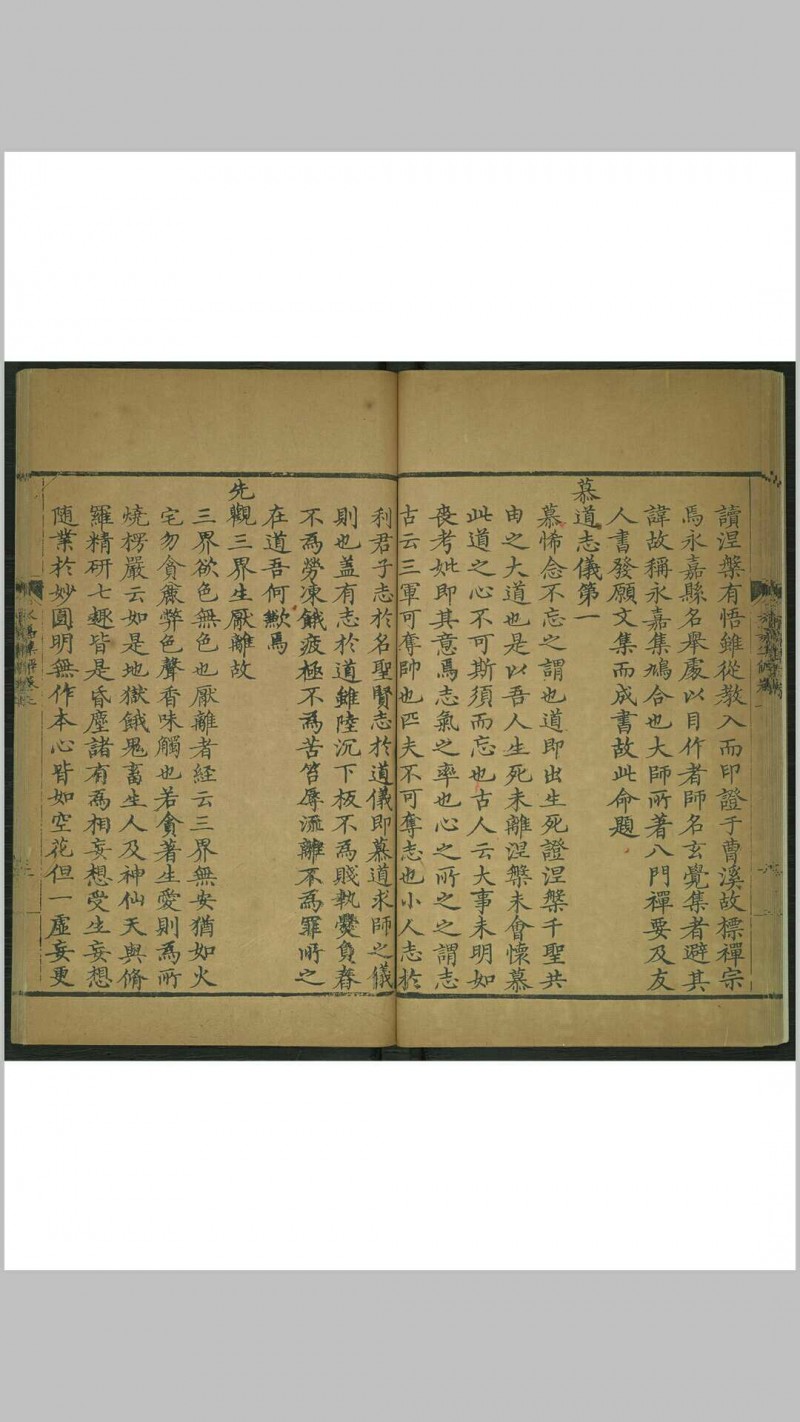 讀涅槃有悟雖從教入而印證于曹溪故標禪宗
焉永嘉縣名舉處以目作者師名玄覺集者避其
諱故稱永嘉集鳩合也大師所著八門禪要及友
人書發願文集而成書故此命題
慕道志儀第一
慕悕念不忘之謂也道即出生死證涅槃千聖共
由之大道也是以吾人生死未離涅槃未會懷慕
此道之心不可斯須而忘也古人云大事未明如
喪考妣即其意焉志氣之率也心之所之之謂志
古云三軍可奪帥也匹夫不可奪志也小人志於
利君子志於名聖賢志於道儀即慕道求師之儀
則也盖有志於道雖陸沉下板不為賤執爨負舂
不為勞凍餓疲極不為苦笞辱流離不為罪所之
在道吾何歉焉
先觀三界生厭離故
三界欲色無色也厭離者経云三界無安猶如火
宅勿貪麁弊色聲香味觸也若貪著生愛則為所
燒楞嚴云如是地獄餓鬼畜生人及神仙天與脩
羅精研七趣皆是昏塵諸有為相妄想受生妄想
随業於妙圓明無作本心皆如空花但一虛妄更